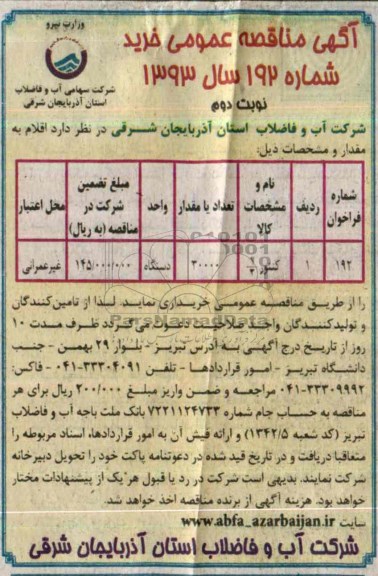 وزارت نیرو
شرکت سهامی آب و فاضلاب
استان آذربایجان شرقی
آگهی مناقصه عمومی خرید
شماره ۱۹۲ سال ۱۳۹۳
نوبت دوم
شرکت آب و فاضلاب استان آذربایجان شرقی در نظر دارد اقلام به
مقدار و مشخصات ذیل:
شماره فراخوان | ردیف | نام و مشخصات کالا | تعداد یا مقدار | واحد | مبلغ تضمین شرکت در مناقصه (به ریال) | محل اعتبار
۱۹۲ | ۱ | کنتور | ۳۰۰۰۰ | دستگاه | ۱۴۵/۰۰۰/۰۰۰ | غیرعمرانی
را از طریق مناقصه عمومی خریداری نماید. لذا از تامین‌کنندگان
و تولیدکنندگان واجد صلاحیت دعوت می‌گردد ظرف مدت ۱۰
روز از تاریخ درج آگهی به آدرس تبریز - بلوار ۲۹ بهمن - جنب
دانشگاه تبریز - امور قراردادها - تلفن ۳۳۳۰۴۰۹۱-۰۴۱ - فاکس:
۳۳۳۰۹۹۹۲-۰۴۱ مراجعه و ضمن واریز مبلغ ۲۰۰/۰۰۰ ریال برای هر
مناقصه به حساب جام شماره ۷۲۲۱۱۲۴۷۳۳ بانک ملت باجه آب و فاضلاب
تبریز (کد شعبه ۱۳۴۲/۵) و ارائه فیش آن به امور قراردادها، اسناد مربوطه را
متعاقبا دریافت و در تاریخ قید شده در دعوتنامه پاکت خود را تحویل دبیرخانه
شرکت نمایند. بدیهی است شرکت در رد یا قبول هر یک از پیشنهادات مختار
خواهد بود. هزینه آگهی از برنده مناقصه اخذ خواهد شد.
سایت www.abfa_azarbaijan.ir
شرکت آب و فاضلاب استان آذربایجان شرقی
ParsNamadData